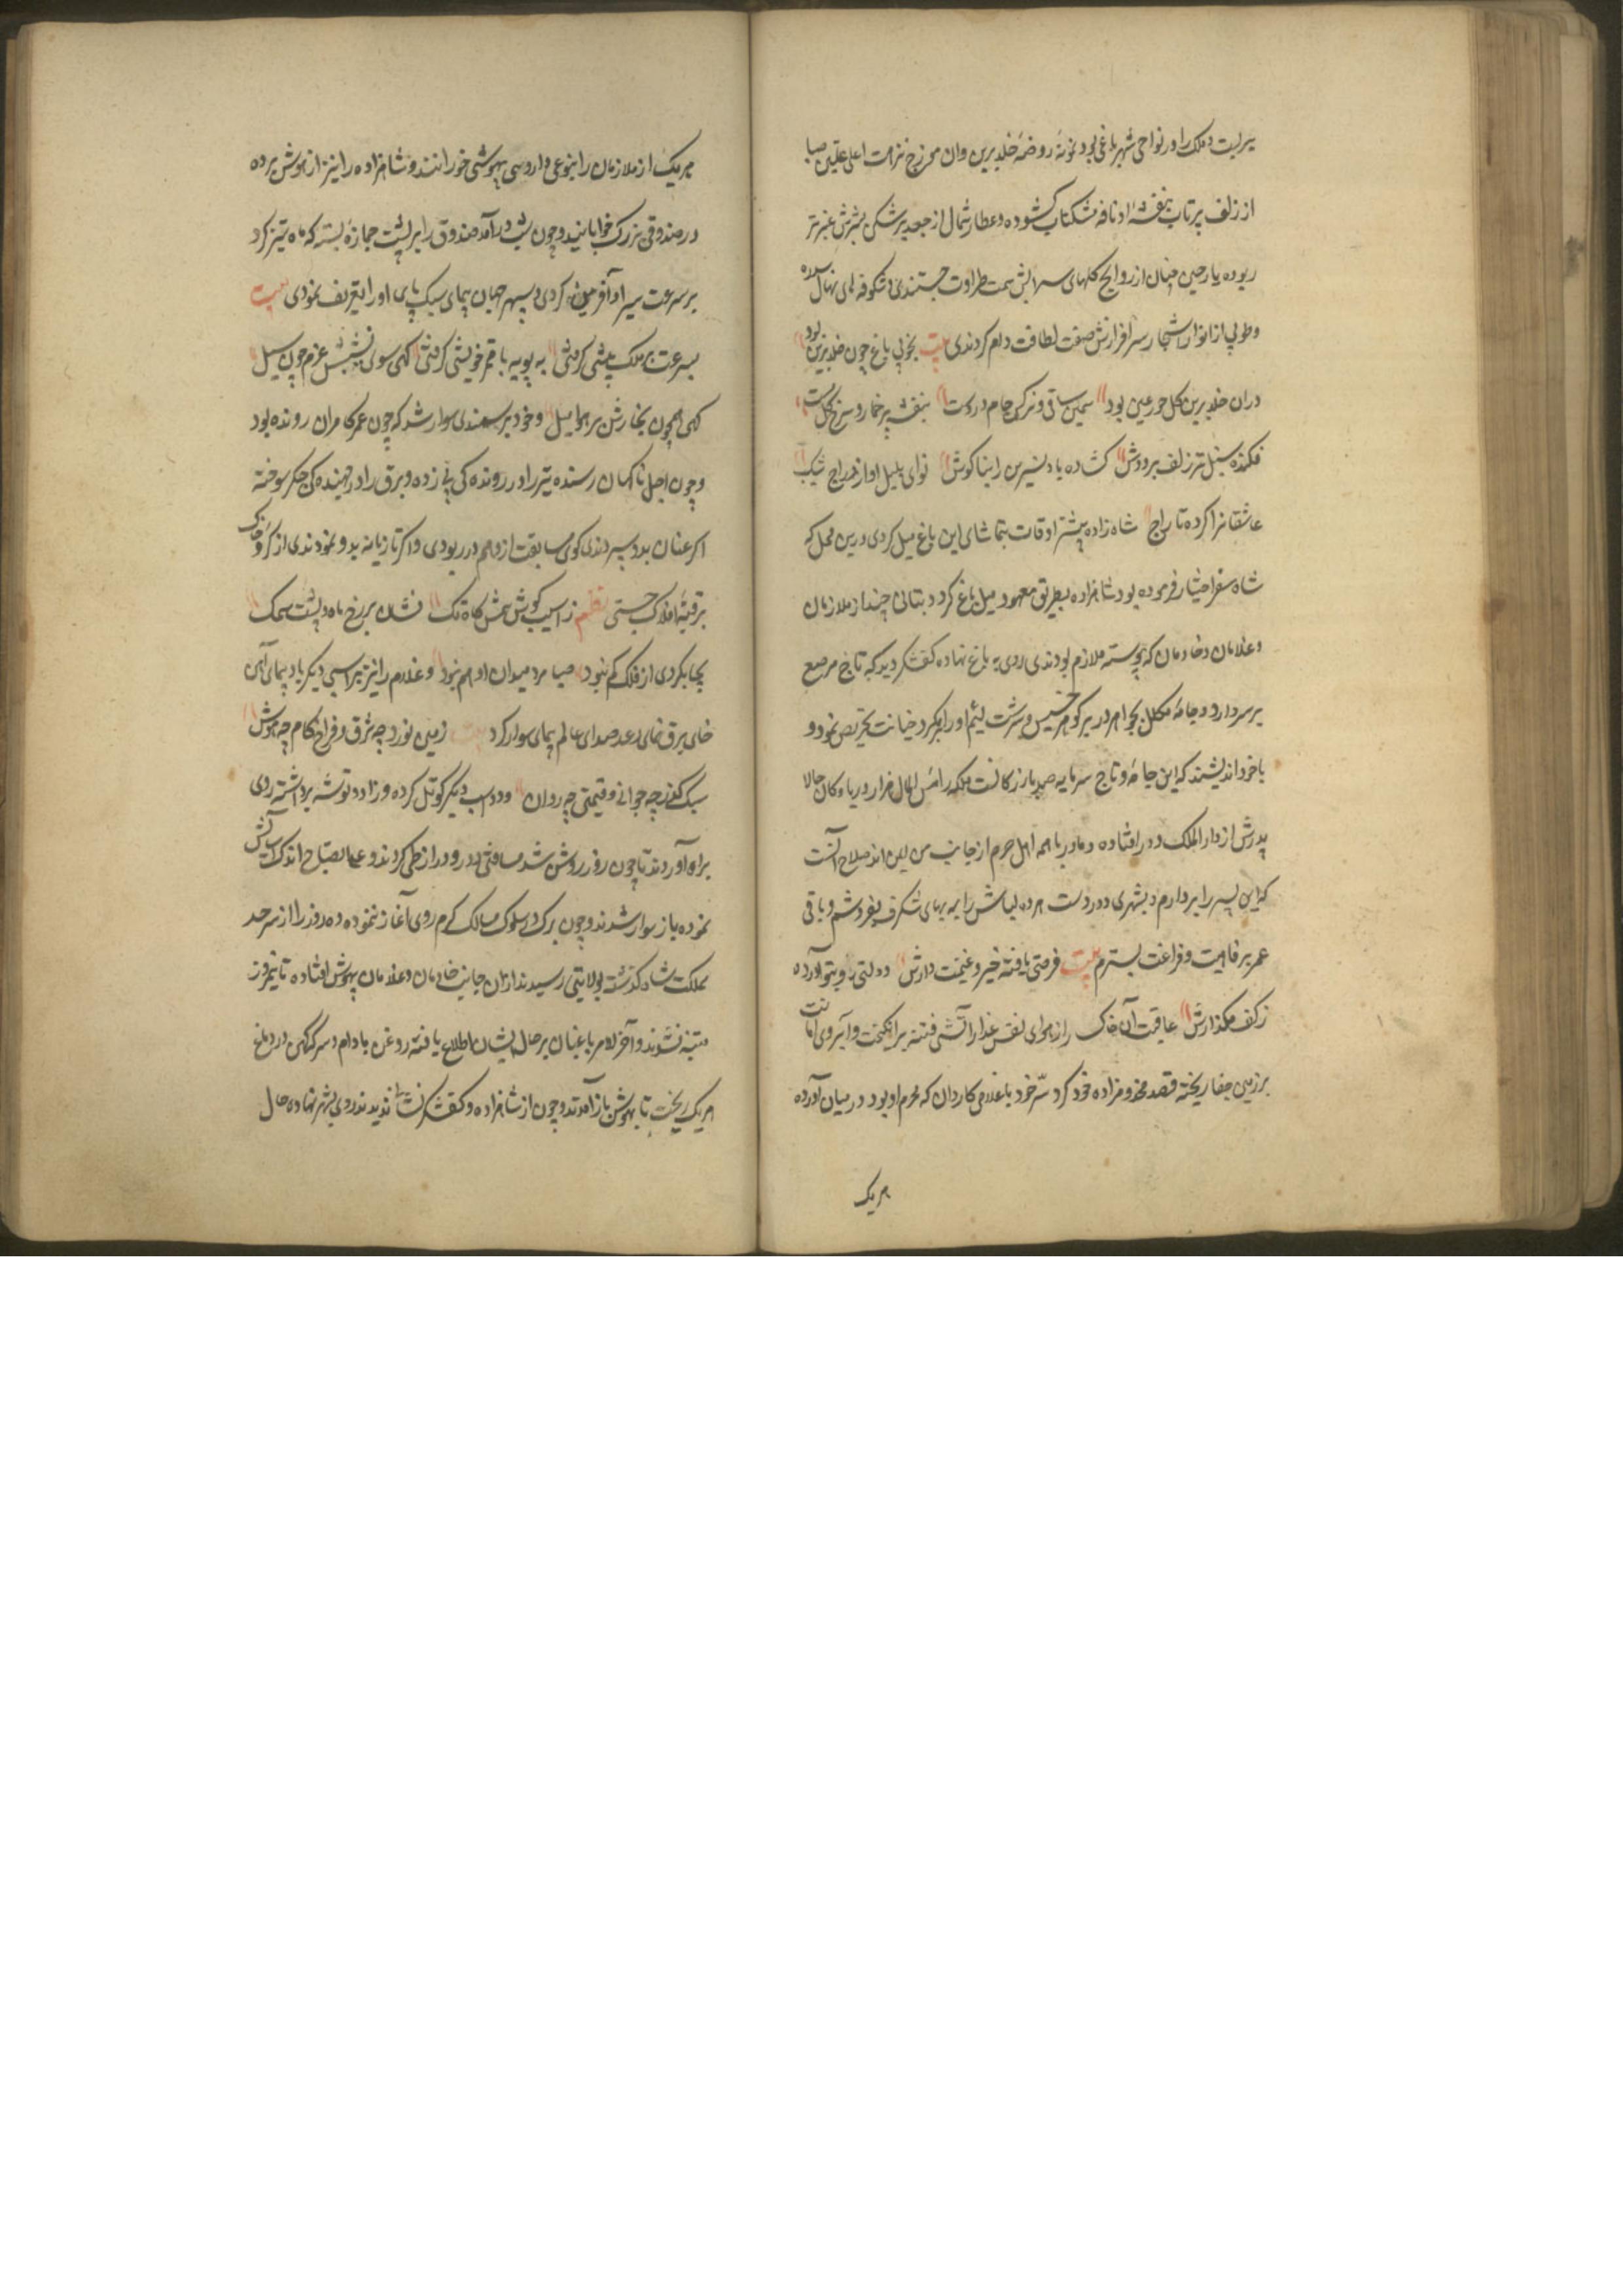 بریست و ملک را در نواحی شهر باغی بود نمونه روضهٔ خلد برین وان محرزخ نزهت اعلی علیین صبا
از زلف پرتاب بنفشهٔ او نافه مشکتاب کشوده و عطار شمال از جعد پرشکن بشرش عنبرتر
ربوده ریاحین جنان از روایح کلهای سرابش سمت طراوت جستندی و شکوفه های نهال سدره
و طوبی از انوار اشجار سرافرازش صفت لطافت دام کردندی بیت بخوبی باغ چون خلد برین بود
دران خلد برین کل حور عین بود سمن ساقی و نرکس جام در دست بنفشه پرخمار و سرخ کل مست
فکنده سنبل تر زلف بر دوش کشاده باد نسرین را بناکوش نوای بلبل و آواز دراج شکیب
عاشقانرا کرده تاراج شاه زاده بیشتر اوقات بتماشای این باغ میل کردی درین محل که
شاه سفر اختیار فرموده بود شاهزاده بطریق معهود میل باغ کرد و بتانی چند از ملازمان
و غلامان و خادمان که پیوسته ملازم بودندی روی به باغ نهاده کفشکر دید که تاج مرصع
بر سر دارد و جامهٔ مکلل بجواهر در بر کوهر خسیس و سرشت لئیم او را بر مکر و خیانت تحریص نمود و
با خود اندیشید که این جامه و تاج سرمایه صد بازرکانست بلکه رأس المال هزار دریا و کان حالا
پدرش از دار الملک دور افتاده و مادر با همه اهل حرم از جانب من ایمن اند صلاح آنست
که این پسر را بردارم و بشهری دور دست برده لباسش را به بهای شکرف بفروشم و باقی
عمر برفاهیت و فراغت بسر برم بیت فرصتی یافتهٔ خیز و غنیمت دارش دولتی رو بتو آورده
ز کف مکذارش عاقبت آن خاک را از هوای نفس غدار آتشی فتنه برانکیخت و آبروی امانت
بر زمین جفا ریخته قصد مخدوم زاده خود کرد سرّ خود با غلامی کاردان که محرم او بود در میان آورده
هریک
هریک از ملازمان را بنوعی داروی بیهوشی خورانند و شاهزاده را نیز از هوش برده
در صندوقی بزرک خوابانید و چون شب درآمد صندوق را بر پشت جمازهٔ بسته که ماه تیز کرد
بر سرعت سیر او آفرین کردی و سپهر جهان پیمای سبک پای او را تعریف نمودی بیت
بسرعت بر ملک پیشی کرفتی به پویه با قمر خویشی کرفتی کهی سوی نشیبش عزم چون سیل
کهی همچون بخارش بر هوا میل و خود بر سمندی سوار شد که چون عمر کامران رونده بود
و چون اجل ناکهان رسنده تیر را در روندکی پی زده و برق را در جهندکی جکر سوخته
اکر عنان بدو سپردندی کوی مسابقت از وهم در ربودی و اکر تازیانه بدو نمودندی از کره خاک
بر قبهٔ افلاک جستی نظم ز آسیب کوبش سمش کاه تک نشان بر رخ ماه و پشت سمک
بچابکروی از فلک کم نبود صبا مرد میدان او هم نبود و غلام را نیز بر اسبی دیکر باد پیمای آهن
خای برق نمای رعد صدای عالم پیمای سوار کرد بیت زمین نورد چه شوق و فراخ کام چه هوش
سبک کذر چه جوانی و قیمتی چه روان و دو اسب دیکر کوتل کرده و زاد و توشه برداشته روی
براه آوردند تا چون روز روشن شد مسافتی دور و دراز طی کردند و علی الصباح اندک آسایش
نموده باز سوار شدند و چون برک در سلوک مسالک کرم روی آغاز نموده ده روز را از سرحد
مملکت شاه کذشته بولایتی رسیدند ازان جانب خادمان و غلامان بیهوش افتاده تا نیم روز
متنبه نشدند و آخر الامر باغبان بر حال ایشان اطلاع یافته روغن بادام و سرکه کهن در دماغ
هریک ریخت تا بهوش باز آمدند و چون از شاهزاده و کفشکر نشان ندیدند روی بشهر نهاده حال